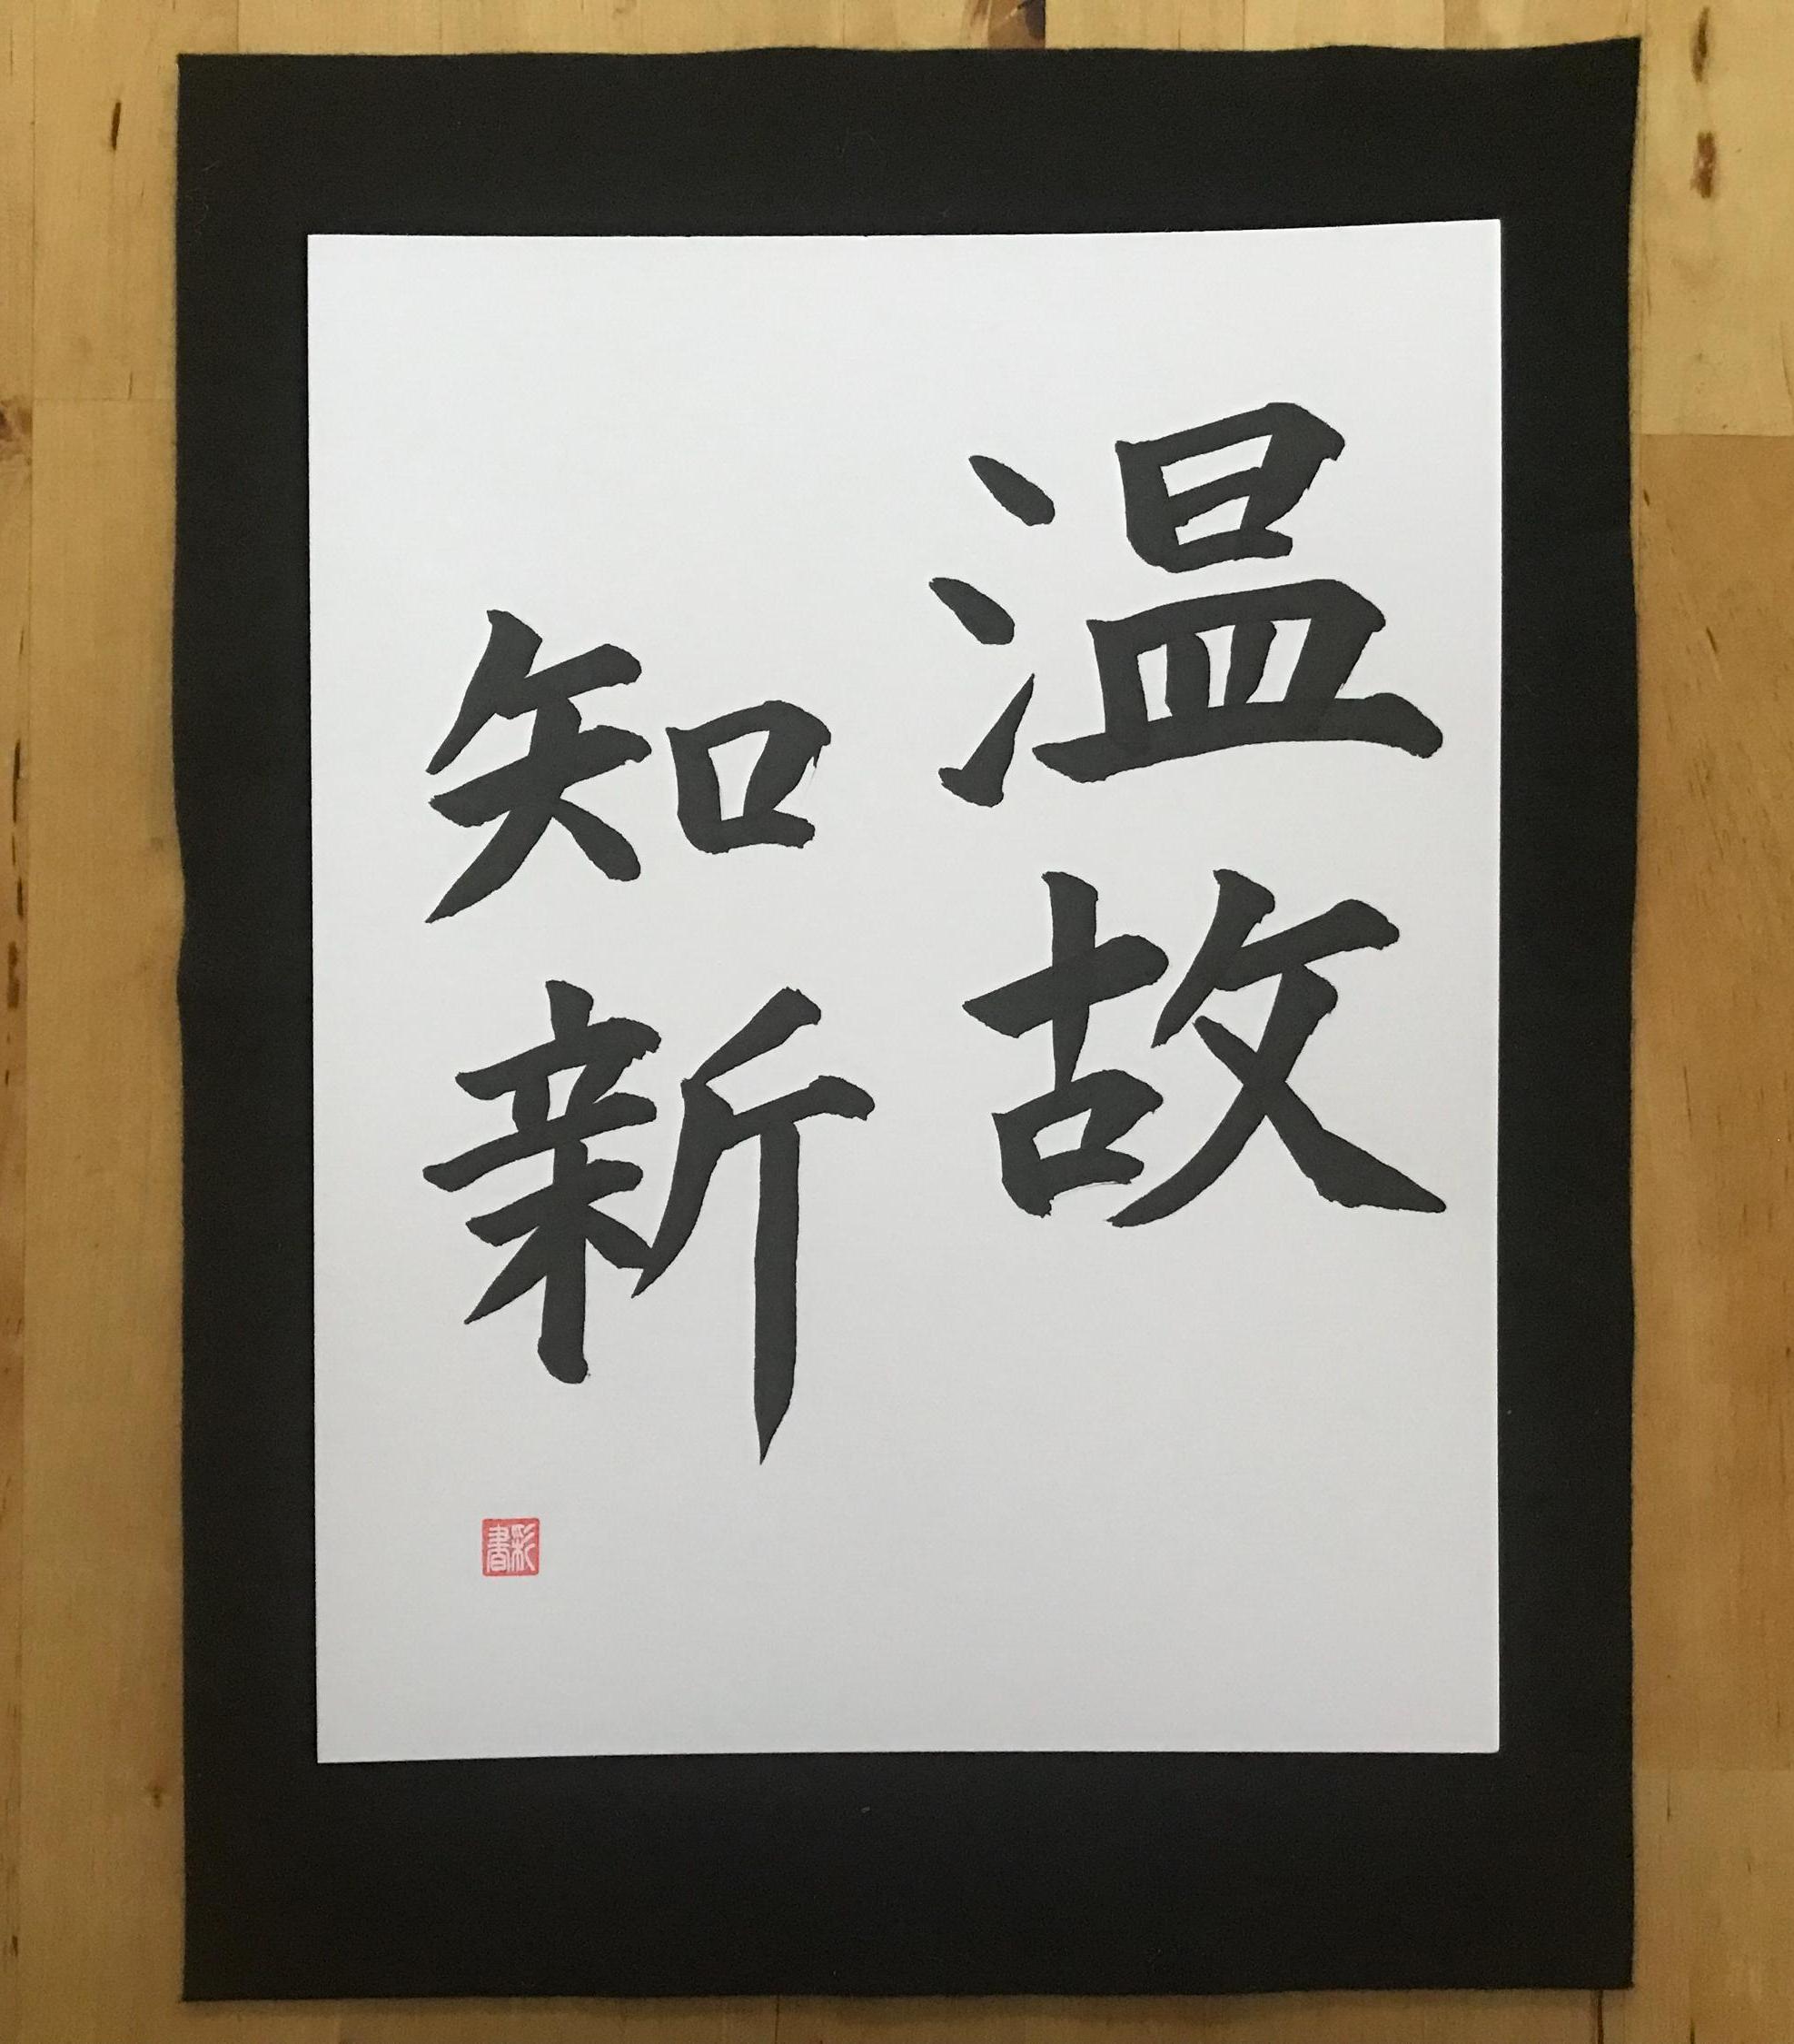 温故
知新
彩書